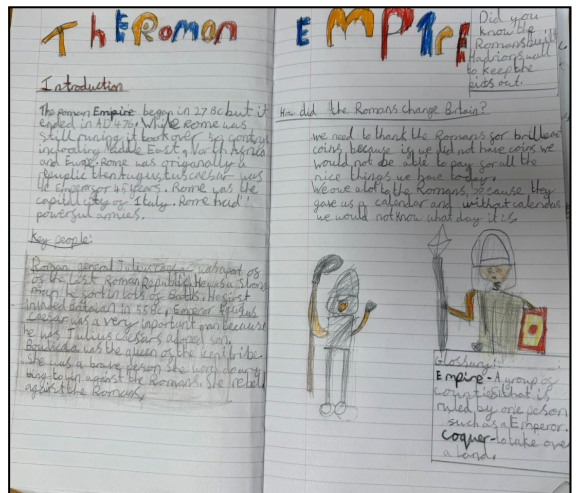 The Roman
EMPIrE
Introduction
The roman Empire began in 27 BC but it
ended in AD 476. While Rome was
still runing it took over
incloating Middle East, North Africa
and Europe. Rome was origanally a
then Augustus caesar was
emperor 45 years. Rome was the
capital city of Italy. Rome had
powerful armies.
Key people:
Roman general Julius was part of
of the last Roman Republic. He was a
man he in lots of He first
invaded in 55BC, Emperor
Caesar was a very inportant man because
he was Julius Caesars son.
was the queen of the tribe.
she was a brave person she
to win against the Romans. She rebell
against the Romans.
Did you
know the
Romans built
wall
to keep the
picts out.
How did the Romans change Britain?
we need to thank the Romans for
coins because if we did not have coins we
would not be able to pay for all the
nice things we have today.
We owe alot to the Romans, because they
gave us a calendar and without calendars
we would not know what day it is.
Glossary:
Empire - A group of
that is
ruled by one person
such as a Emperor.
Coquer - to take over
a land.